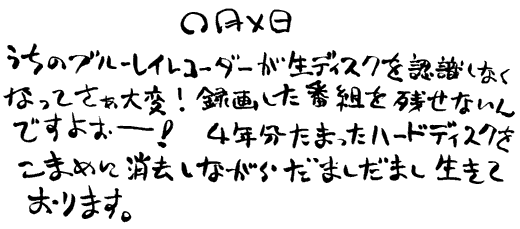 〇月×日
うちのブルーレイレコーダーが生ディスクを認識しなく
なってさぁ大変！録画した番組を残せないん
ですよぉー！ 4年分たまったハードディスクを
こまめに消去しながら・だましだまし生きて
おります。